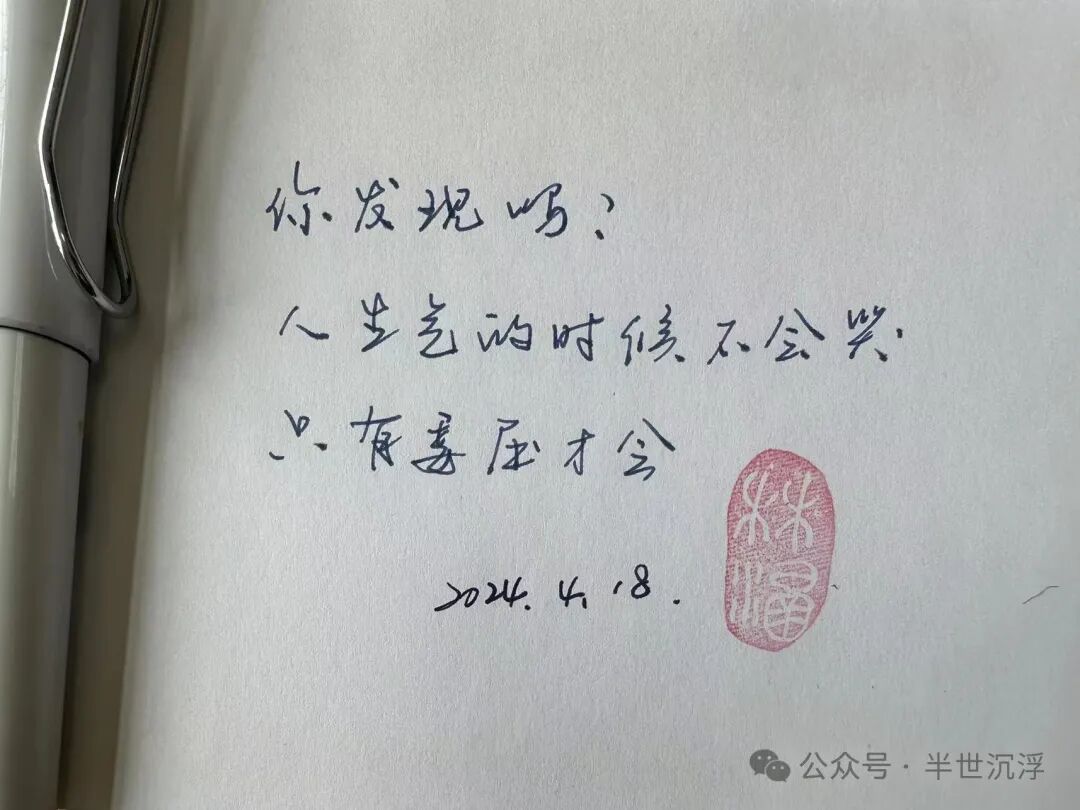 你发现吗？
人生气的时候不会哭.
只有委屈才会
2024.4.18.
公众号·半世沉浮